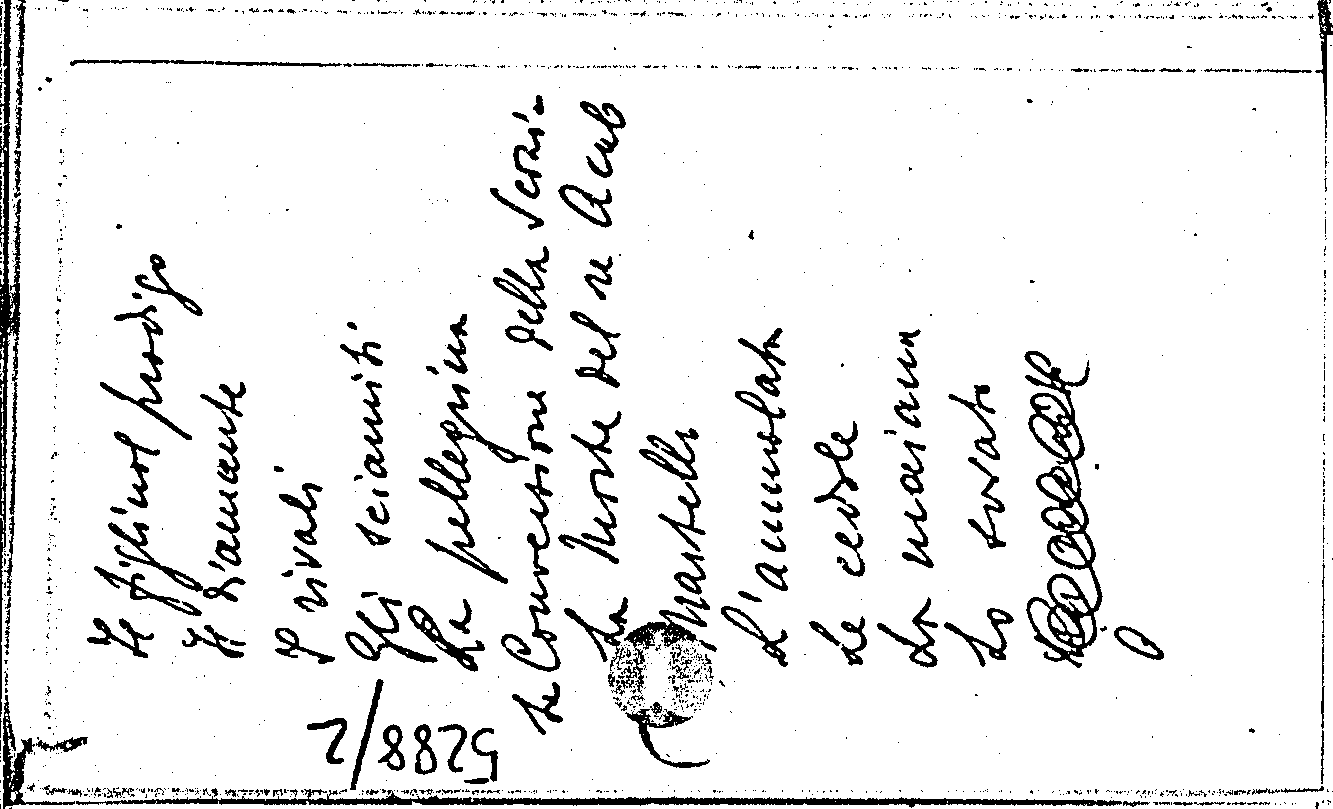 Il figliuol prodigo
Il diamante
I rivali
Gli sciamiti
La pellegrina
La Conversione della
La Morte del re Acab
Martelli
L'ammolata
Le cedole
La
Lo
5288/2